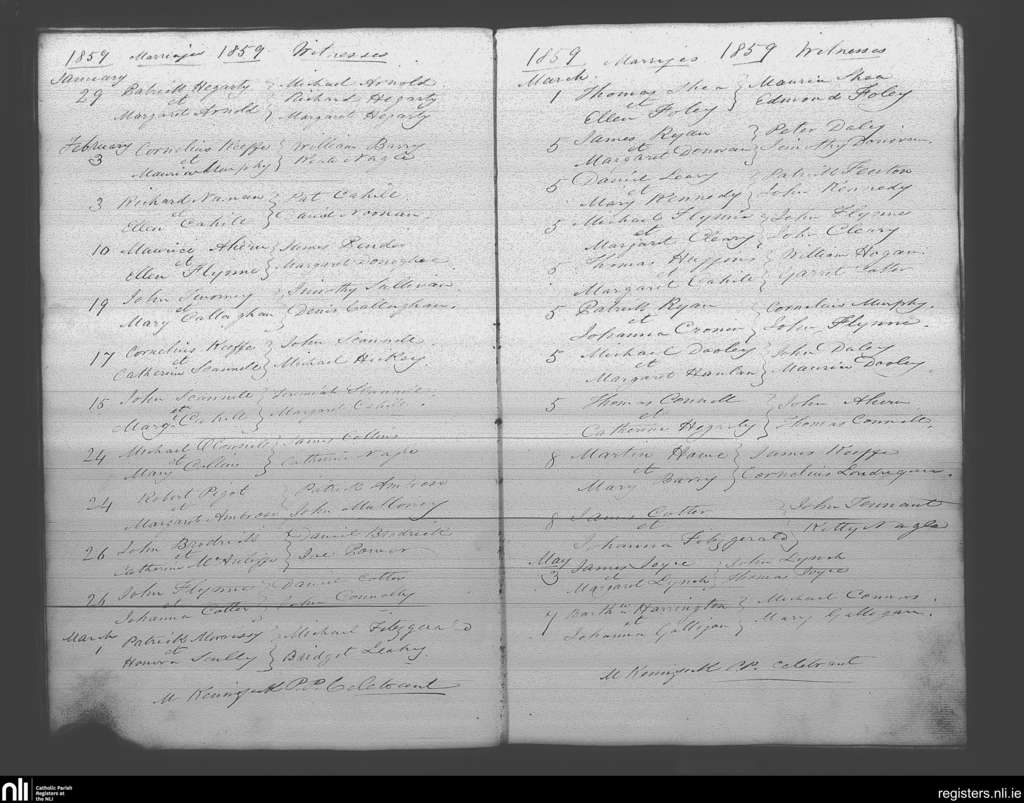 1859 Marriages 1859. Witnesses
January
29 Patrick Hegarty } Michael Arnold
et Richard Hegarty
Margaret Arnold Margaret Hegarty
February
3 Cornelius Keeffe } William Barry
et
Maurin Murphy Nagle
3 Richard Nunan } Pat Cahill
et
Ellen Cahill David Noonan.
10 Maurice Ahern } James
et
Ellen Flynne Margaret Donoghue.
19 John } Timothy Sullivan
et
Mary Callaghan Denis Callaghan.
17 Cornelius Keeffe } John Scannell
et
Catherine Scannell Michael Hickey
15 John Scannell } Jeremiah
et
Margt. Cahill Margaret Cahill.
24 Michael O'Connell } James Collins
et
Mary Collins Catherine Nagle
24 Robert Pigot } Patrick Ambrose
et
Margaret Ambrose John Mullowny
26 John Brodrick } Daniel Brodrick
et
Catherine McAuliffe Power
26 John Flynne } Daniel Cotter
et
Johanna Cotter John Connolly
March
1 Patrick Morrissy } Michael Fitzgerald
et
Honora Scully Bridget Leahy.
M P.P. Celebrant
1859 Marriages 1859 Witnesses
March.
1 Thomas Shea } Maurice Shea
et
Ellen Foley Edmond Foley
5 James Ryan } Peter Daley
et
Margaret Donovan Timothy Donovan.
5 Daniel Leary } Patrick Fenton
et
Mary Kennedy John Kennedy
5 Michael Flynne } John Flynne
et
Margaret Clenry John Clenry
5 Thomas Huggins } William Hogan.
et
Margaret Cahill Garret Cotter
5 Patrick Ryan } Cornelius Murphy.
et
Johanna Cronin John Flynne.
5 Michael Dooley } John Daley
et
Margaret Hanlan Maurice Dooley.
5 Thomas Connell } John Ahern
et
Catherine Hegarty Thomas Connell.
8 Martin Hawe } James Keeffe
et
Mary Barry Cornelius Londregan.
8 James Cotter } John Tennant
et
Johanna Fitzgerald Kitty Nagle
May
3 James Joyce } John Lynch
et
Margaret Lynch Thomas Joyce
7 Barthw. Harrington } Michael Connors.
et
Johanna Galligan Mary Galligan.
M P.P. Celebrant
nli Catholic Parish
Registers at
the NLI
registers.nli.ie